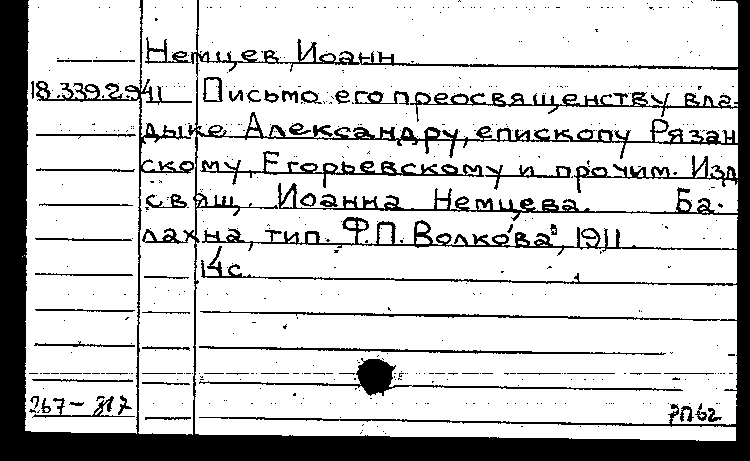 Немцев, Иоанн
18.339.2.941 Письмо его преосвященству вла-
дыке Александру, епископу Рязан
скому, Егорьевскому и прочим. Изд
свящ. Иоанна Немцева. Ба-
лахна, тип. Ф.П. Волкова, 1911.
14 с.
267-317 РП62